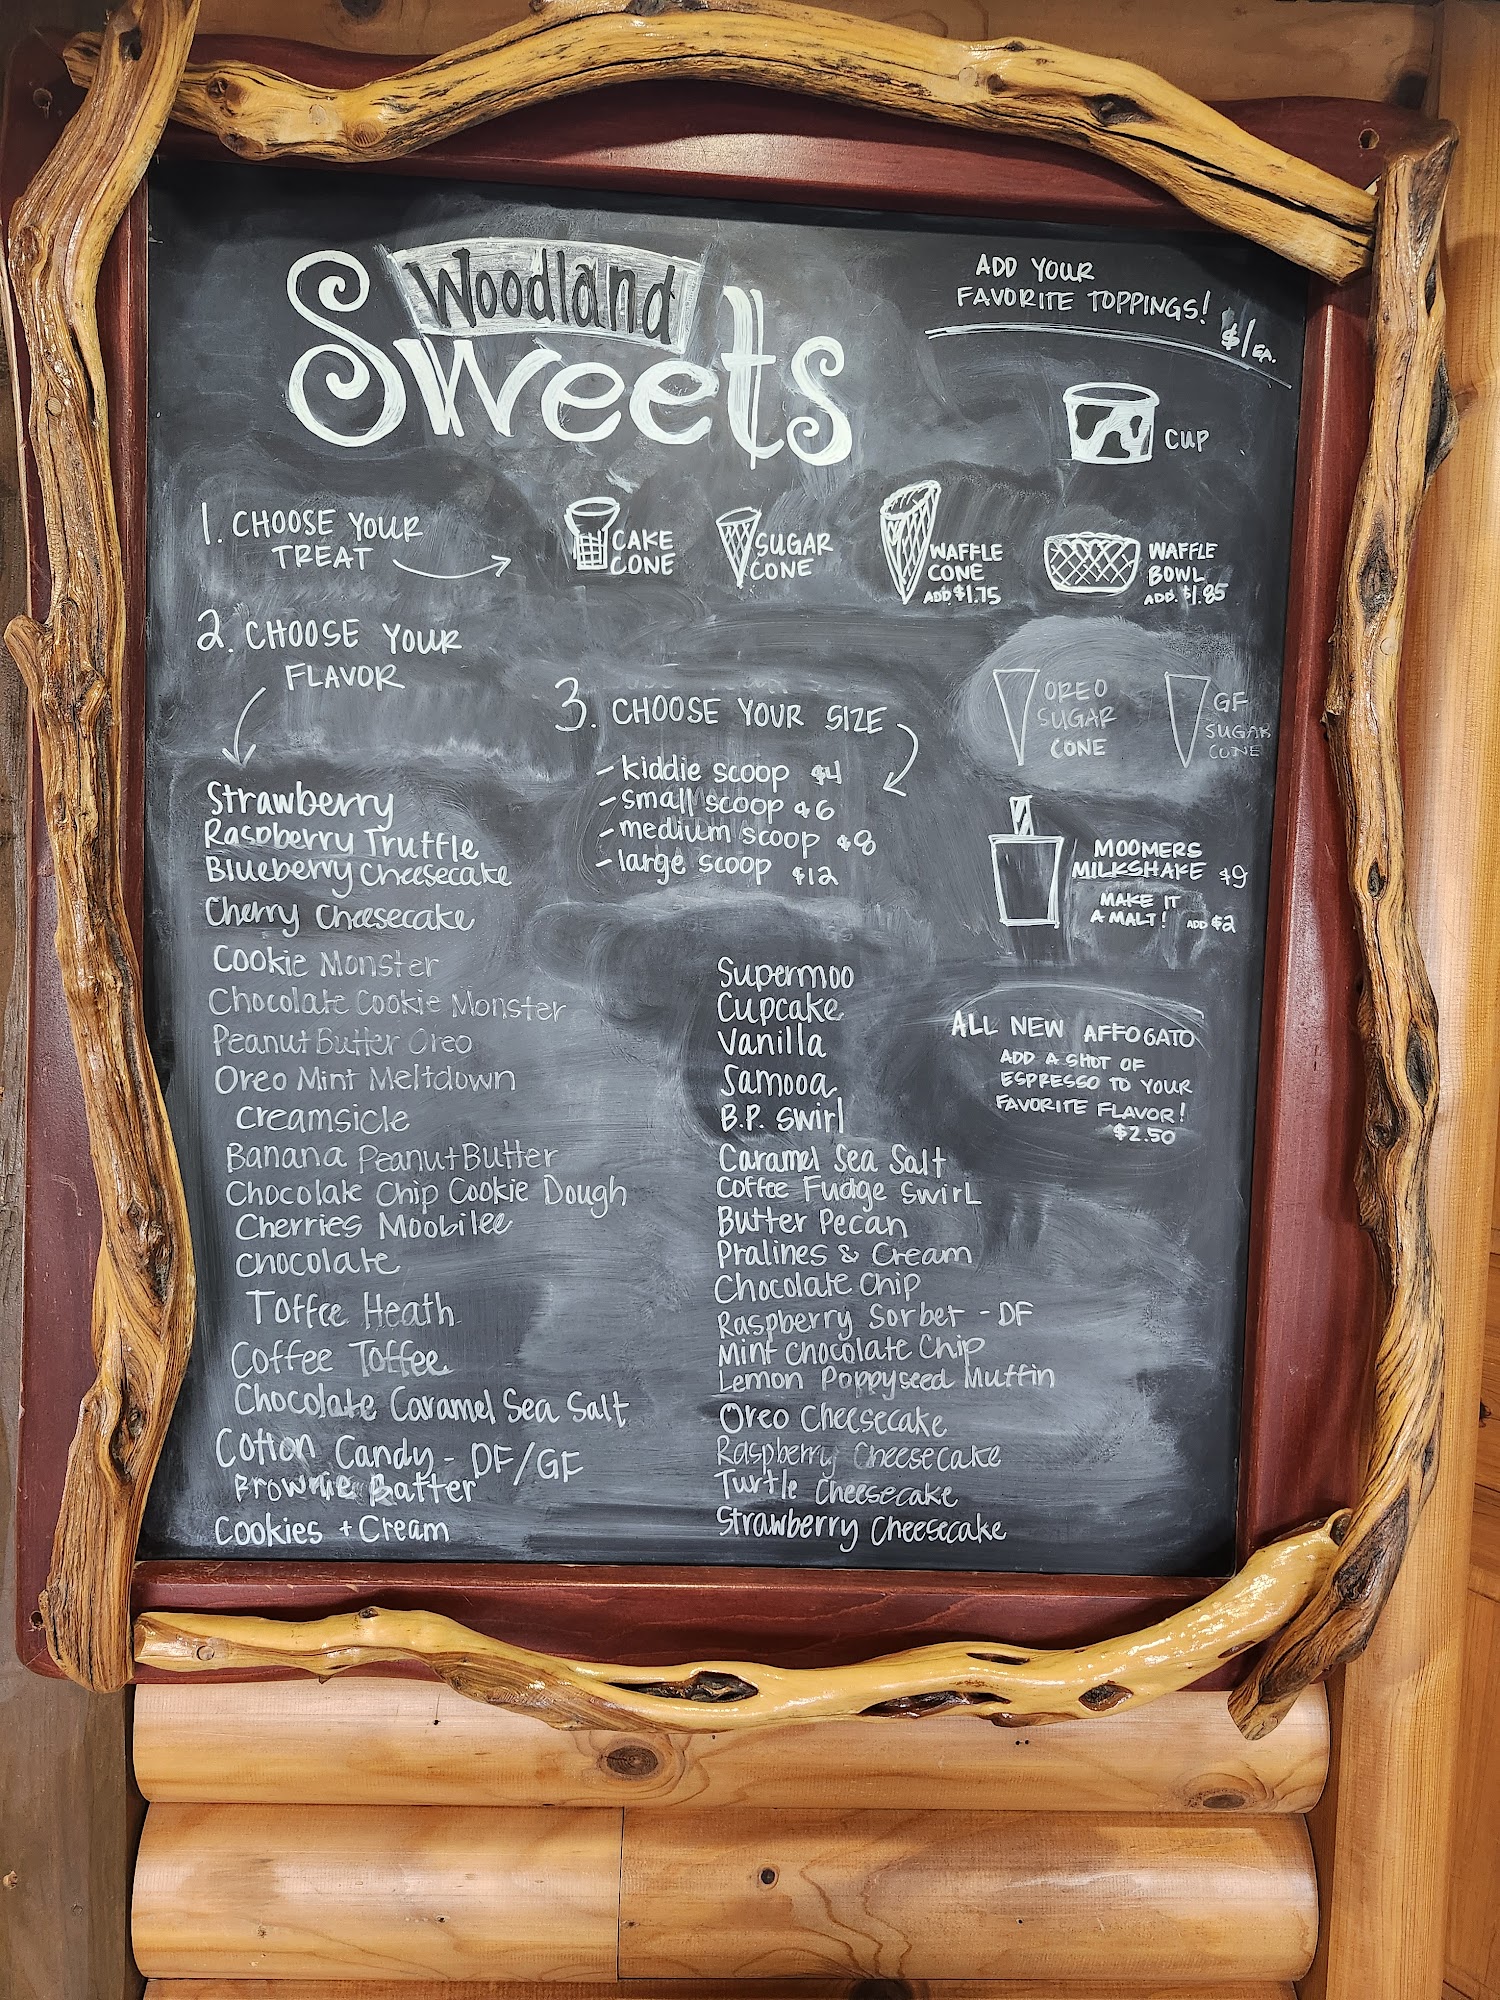 Woodland
Sweets
ADD YOUR
FAVORITE TOPPINGS!
$1/EA.
CUP
1. CHOOSE YOUR
TREAT
CAKE
CONE
SUGAR
CONE
WAFFLE
CONE
ADD $1.75
WAFFLE
BOWL
ADD. $1.85
OREO
SUGAR
CONE
GF
SUGAR
CONE
2. CHOOSE YOUR
FLAVOR
Strawberry
Raspberry Truffle
Blueberry Cheesecake
Cherry Cheesecake
Cookie Monster
Chocolate Cookie Monster
Peanut Butter Oreo
Oreo Mint Meltdown
Creamsicle
Banana Peanut Butter
Chocolate Chip Cookie Dough
Cherries Moobilee
Chocolate
Toffee Heath
Coffee Toffee
Chocolate Caramel Sea Salt
Cotton Candy - DF/GF
Brownie Batter
Cookies + Cream
3. CHOOSE YOUR SIZE
- kiddie scoop $4
- small scoop $6
- medium scoop $8
- large scoop $12
Supermoo
Cupcake
Vanilla
Samooa
B.P. Swirl
Caramel Sea Salt
Coffee Fudge Swirl
Butter Pecan
Pralines & Cream
Chocolate Chip
Raspberry Sorbet - DF
Mint Chocolate Chip
Lemon Poppyseed Muffin
Oreo Cheesecake
Raspberry Cheesecake
Turtle Cheesecake
Strawberry Cheesecake
MOOMERS
MILKSHAKE $9
MAKE IT
A MALT! ADD $2
ALL NEW AFFOGATO
ADD A SHOT OF
ESPRESSO TO YOUR
FAVORITE FLAVOR!
$2.50